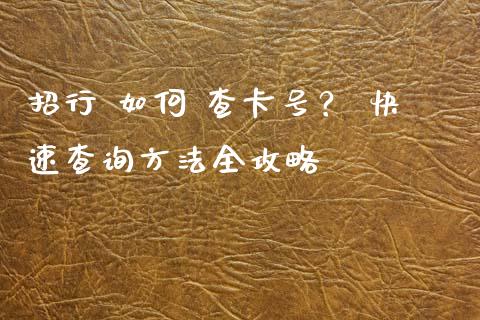 招行 如何 查卡号? 快
速查询方法全攻略